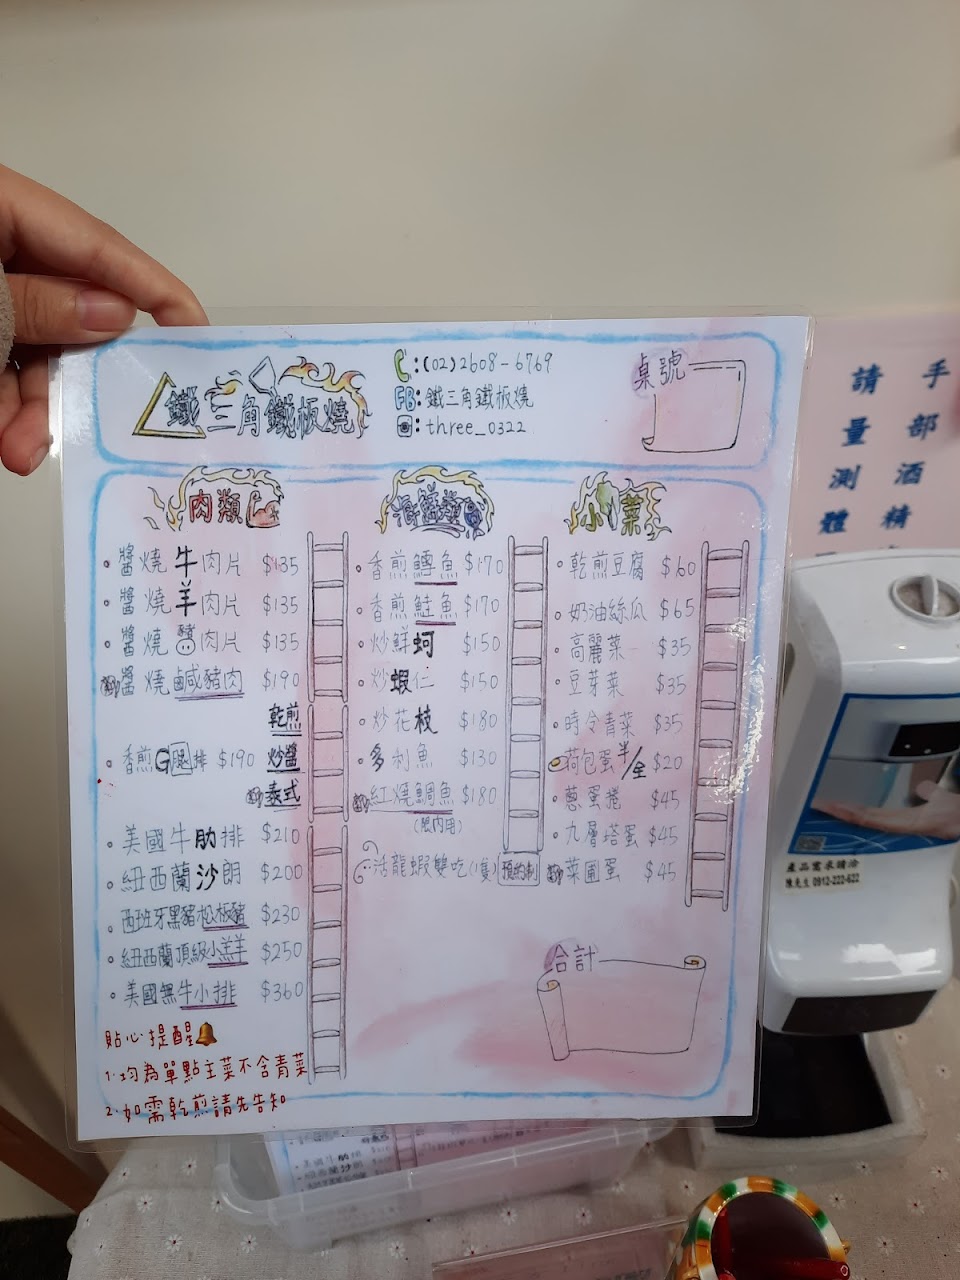 鐵三角鐵板燒
:(02)2608-6769
FB:鐵三角鐵板燒
:three_0322
桌號
肉類
醬燒牛肉片 $135
醬燒羊肉片 $135
醬燒肉片 $135
醬燒鹹豬肉 $190
香煎G腿排 $190
乾煎
炒醬
泰式
美國牛肋排 $210
紐西蘭沙朗 $200
西班牙黑豬松板豬 $230
紐西蘭頂級小羔羊 $250
美國無牛小排 $360
貼心提醒
1.均為單點主菜不含青菜
2.如需乾煎請先告知
海鮮類
香煎鱈魚 $170
香煎鮭魚 $170
炒鮮蚵 $150
炒蝦仁 $150
炒花枝 $180
多利魚 $130
紅燒鯛魚 $180
(限內用)
活龍蝦雙吃(隻) 預約制
小菜
乾煎豆腐 $60
奶油絲瓜 $65
高麗菜 $35
豆芽菜 $35
時令青菜 $35
荷包蛋半/全 $20
蔥蛋捲 $45
九層塔蛋 $45
菜圃蛋 $45
合計
手部酒精
請量測體
產品需求請洽
陳先生 0912-222-622